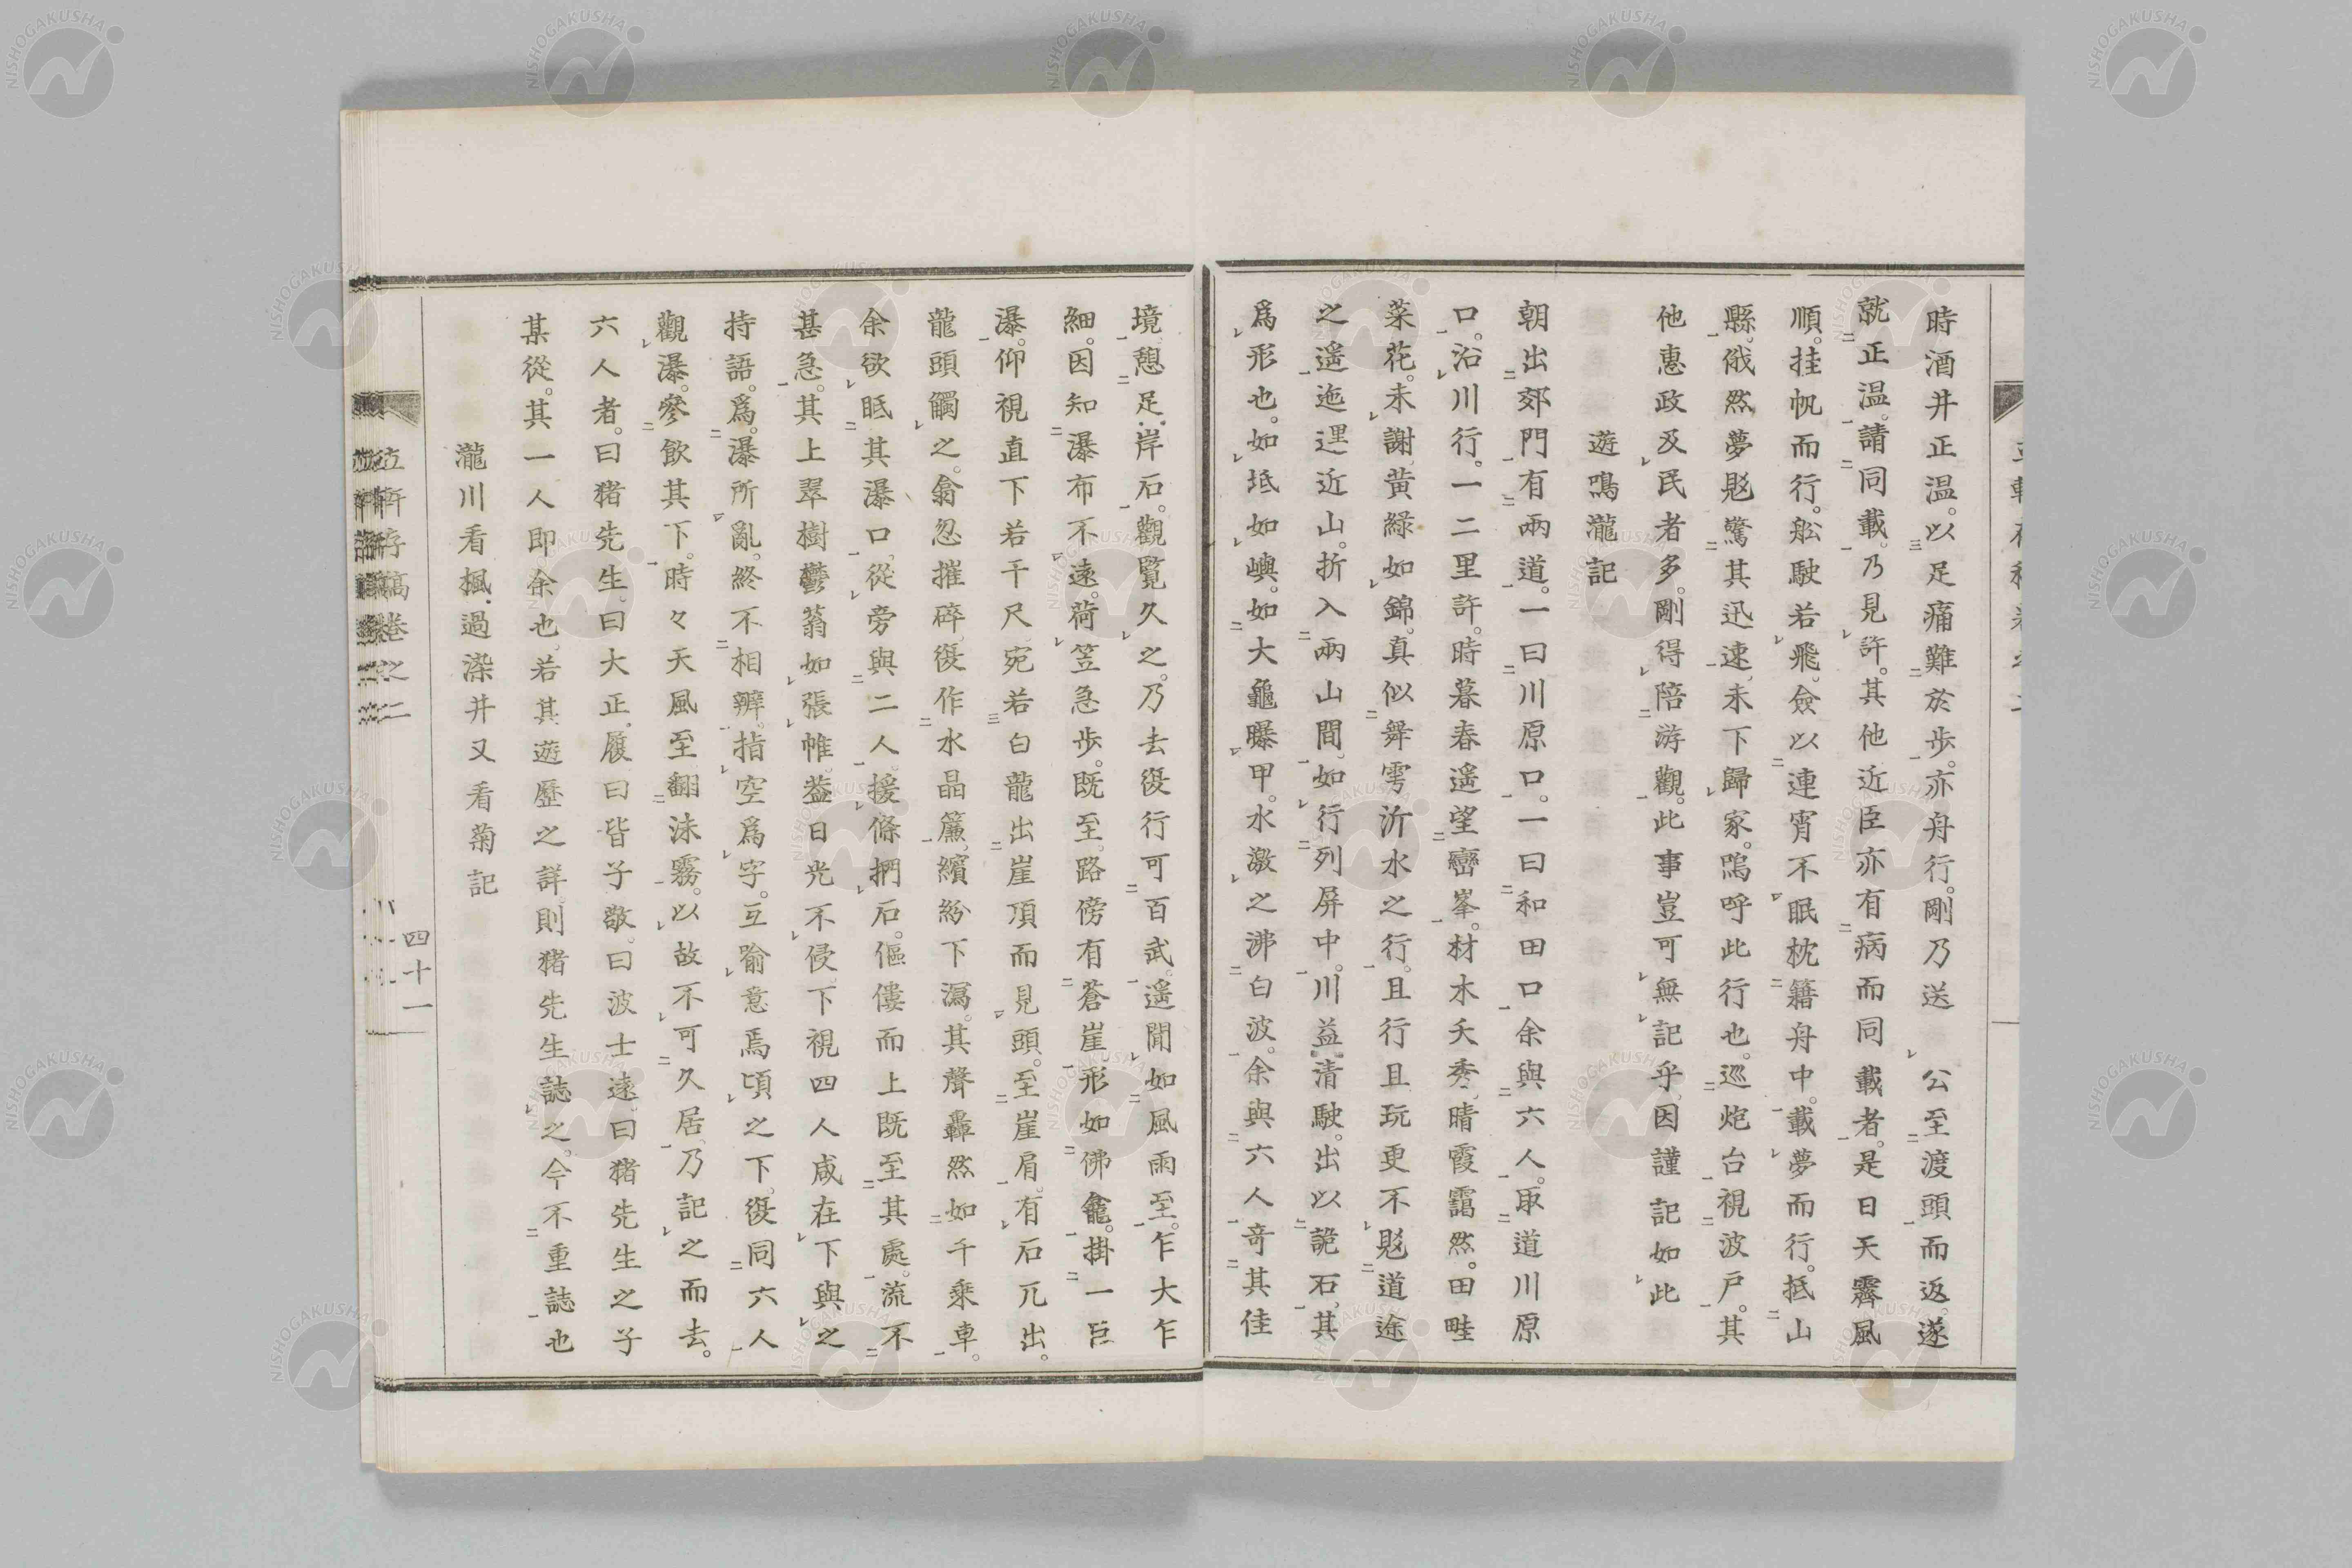 時酒井正温。以足痛難於歩。亦舟行。剛乃送　公至渡頭而返。遂
就正温。請同載。乃見許。其他近臣亦有病而同載者。是日天霽風
順。挂帆而行。舩駛若飛。僉以連宵不眠枕籍舟中。載夢而行。抵山
縣。俄然夢覐驚其迅速。未下歸家。嗚呼此行也。巡炮台視波戸。其
他惠政及民者多。剛得陪游觀。此事豈可無記乎。因謹記如此
遊鳴瀧記
朝出郊門有兩道。一曰川原口。一曰和田口余與六人。取道川原
口。沿川行。一二里許。時暮春遥望巒峯。材木夭秀。晴霞靄然。田畦
菜花。未謝黄綠如錦。真似舞雩沂水之行。且行且玩更不覐道途
之遥迤逕近山。折入兩山間。如行列屏中。川益清駛。出以詭石。其
爲形也。如坻如嶼。如大龜曝甲。水激之沸白波。余與六人竒其佳
境憩足岸石。觀覽久之。乃去復行可百武。遥聞如風雨至。乍大乍
細。因知瀑布不遠。荷笠急歩。既至。路傍有蒼崖形如佛龕。掛一巨
瀑。仰視直下若干尺。宛若白龍出崖頂而見頭。至崖肩。有石兀出。
龍頭觸之。翕忽摧碎。復作水晶簾。繽紛下瀉。其聲轟然如千乘車。
余欲眡其瀑口。從旁與二人。援條捫石。傴僂而上既至其處。流不
甚急。其上翠樹鬱蓊如張帷葢日光不侵。下視四人咸在下與之
持語。爲瀑所亂。終不相辧。指空爲字。互喩意焉頃之下。復同六人
觀瀑。麥飲其下。時々天風至翻沫霧。以故不可久居。乃記之而去。
六人者。曰猪先生。曰大正履曰皆子敬。曰波士遠。曰猪先生之子
某從。其一人即余也。若其遊歷之詳。則猪先生誌之。今不重誌也
瀧川看楓過染井又看菊記
竝軒存稿卷之二
四十一